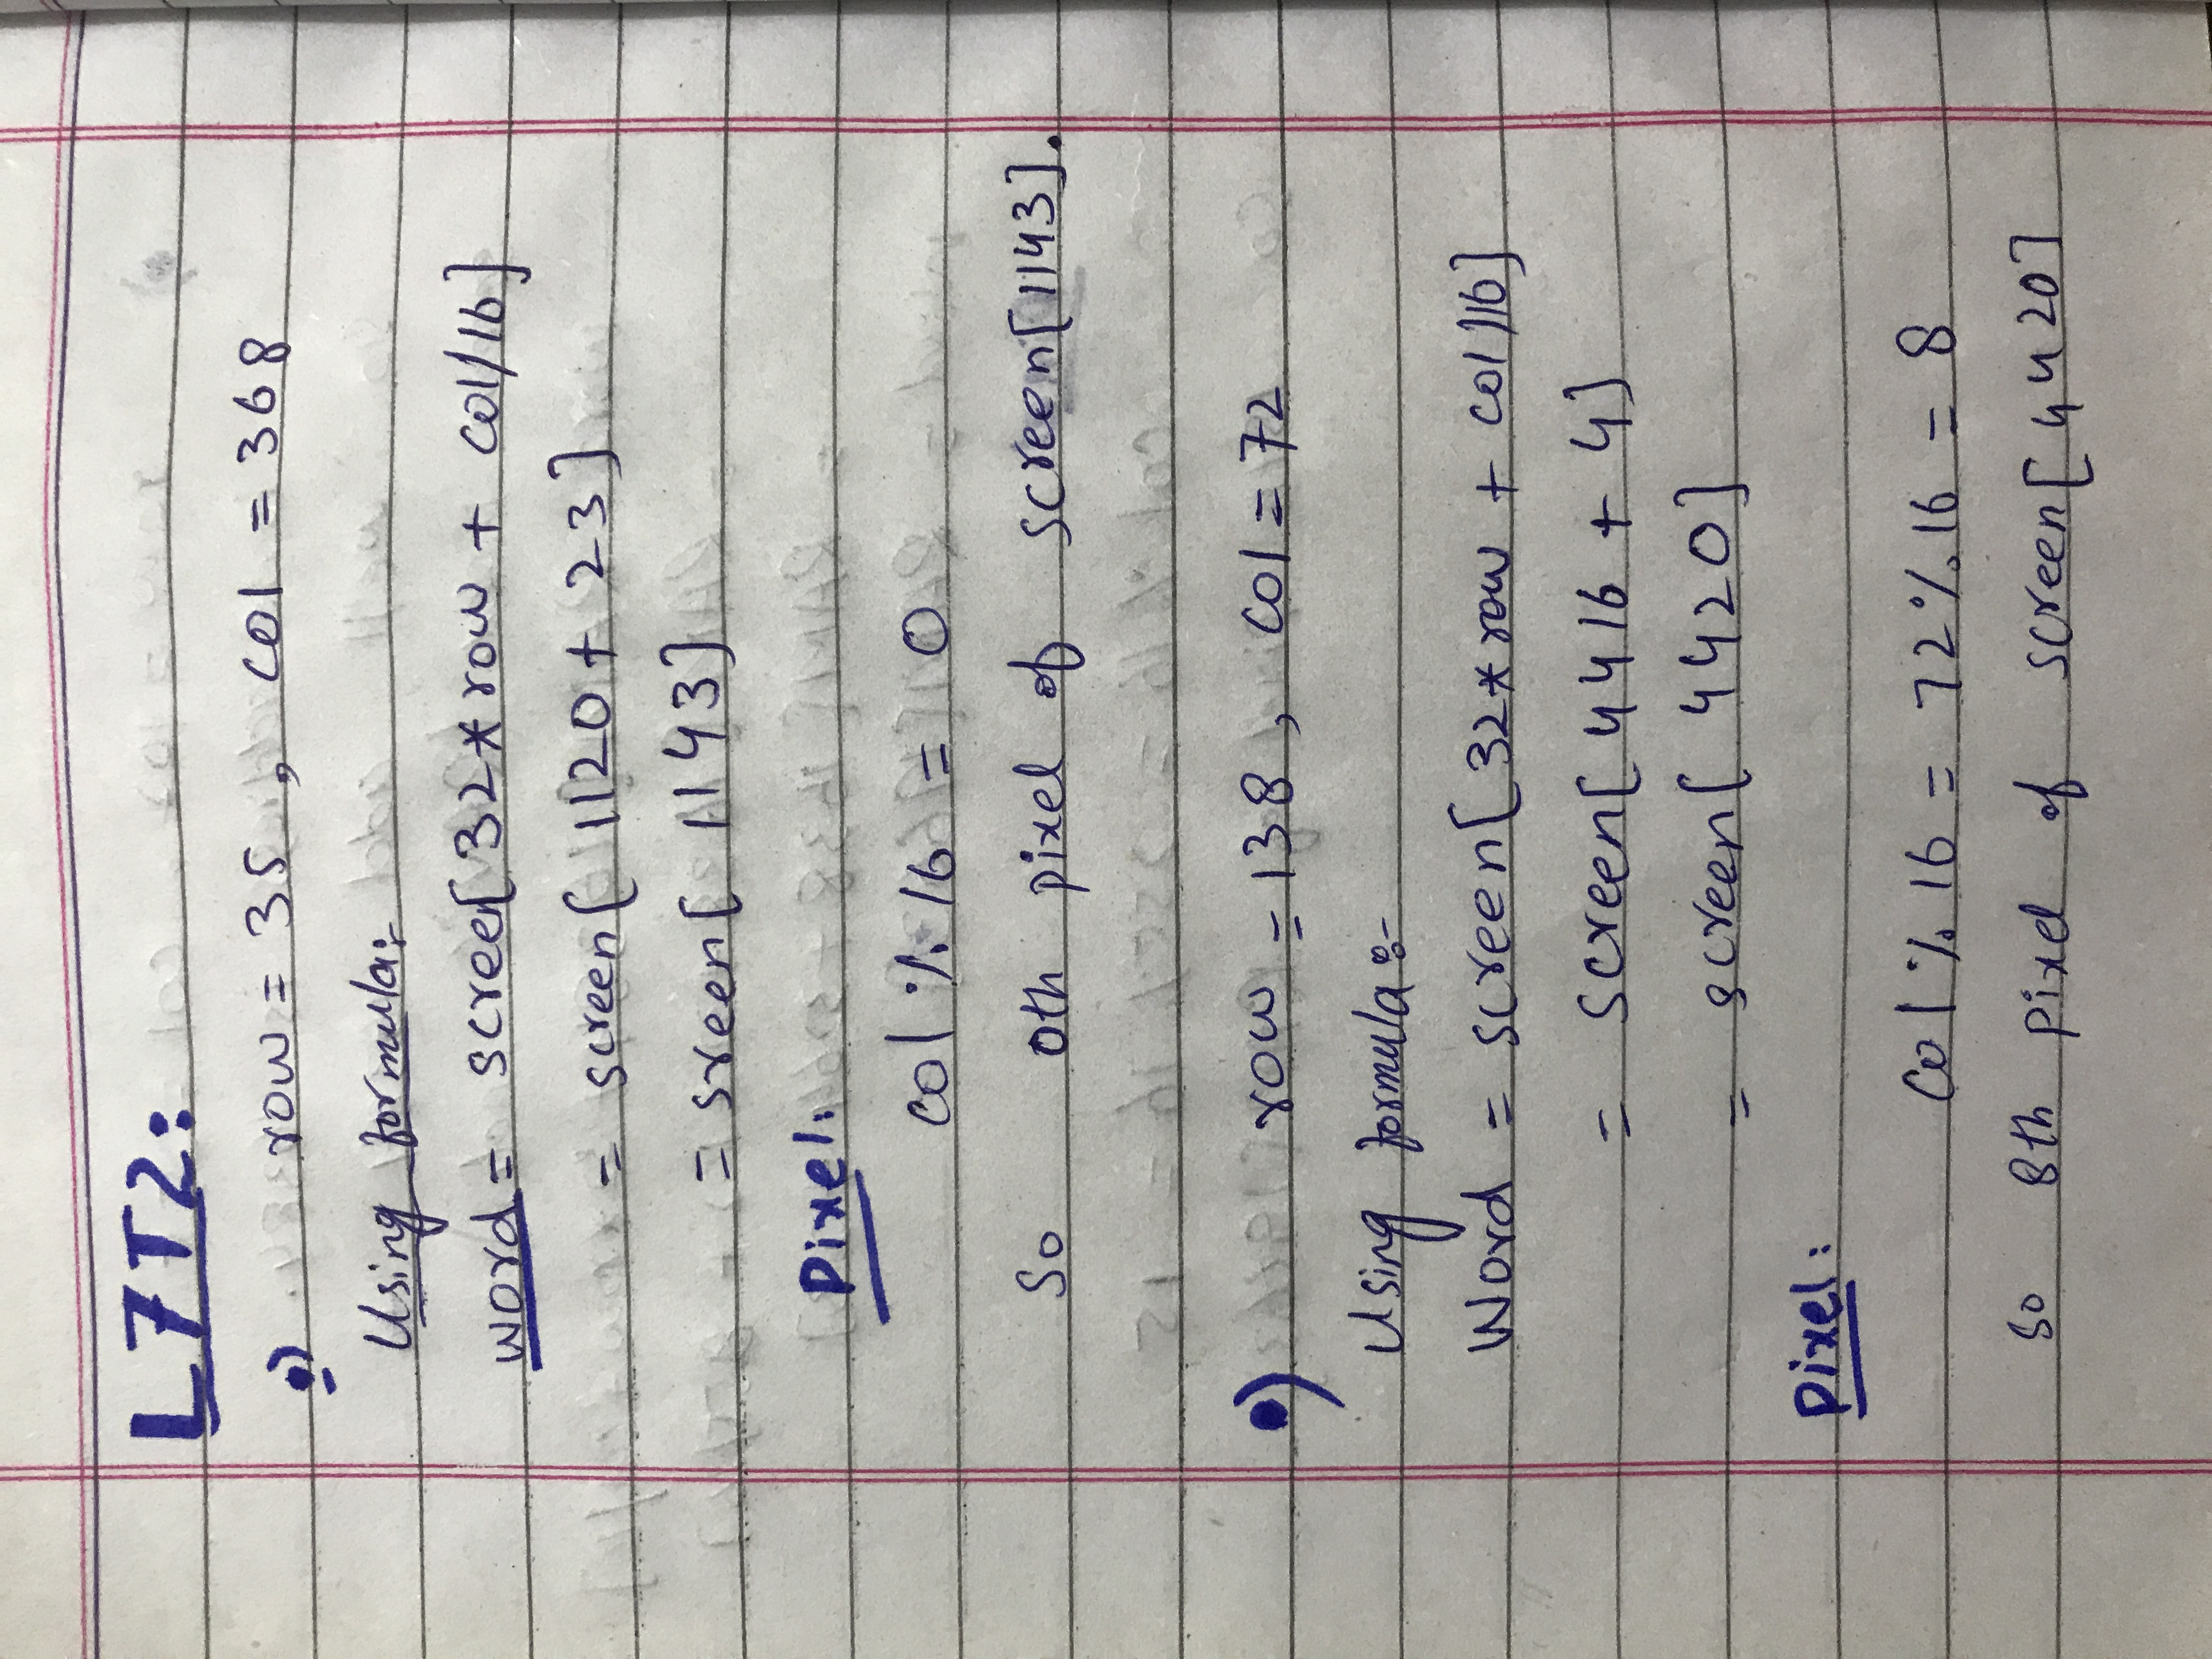 L7T2:
•) row = 35, col = 368
Using formula:-
word = screen[32*row + col/16]
= screen[1120 + 23]
= sreen[1143]
Pixel:
col % 16 = 0
So 0th pixel of screen[1143].
•) row = 138, col = 72
Using formula:-
Word = screen[32*row + col/16]
= screen[4416 + 4]
= screen[4420]
Pixel:
col % 16 = 72 % 16 = 8
So 8th pixel of screen[4420]